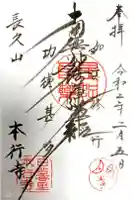 奉拝
令和二年二月五日
如説修行
南無妙法蓮華経
功徳甚多
長久山
本行寺